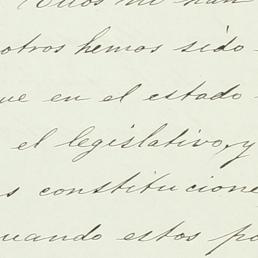 Ellos me han
otros hemos sido
ue en el estado
el legislativo, y
s constitucione
uando estos po